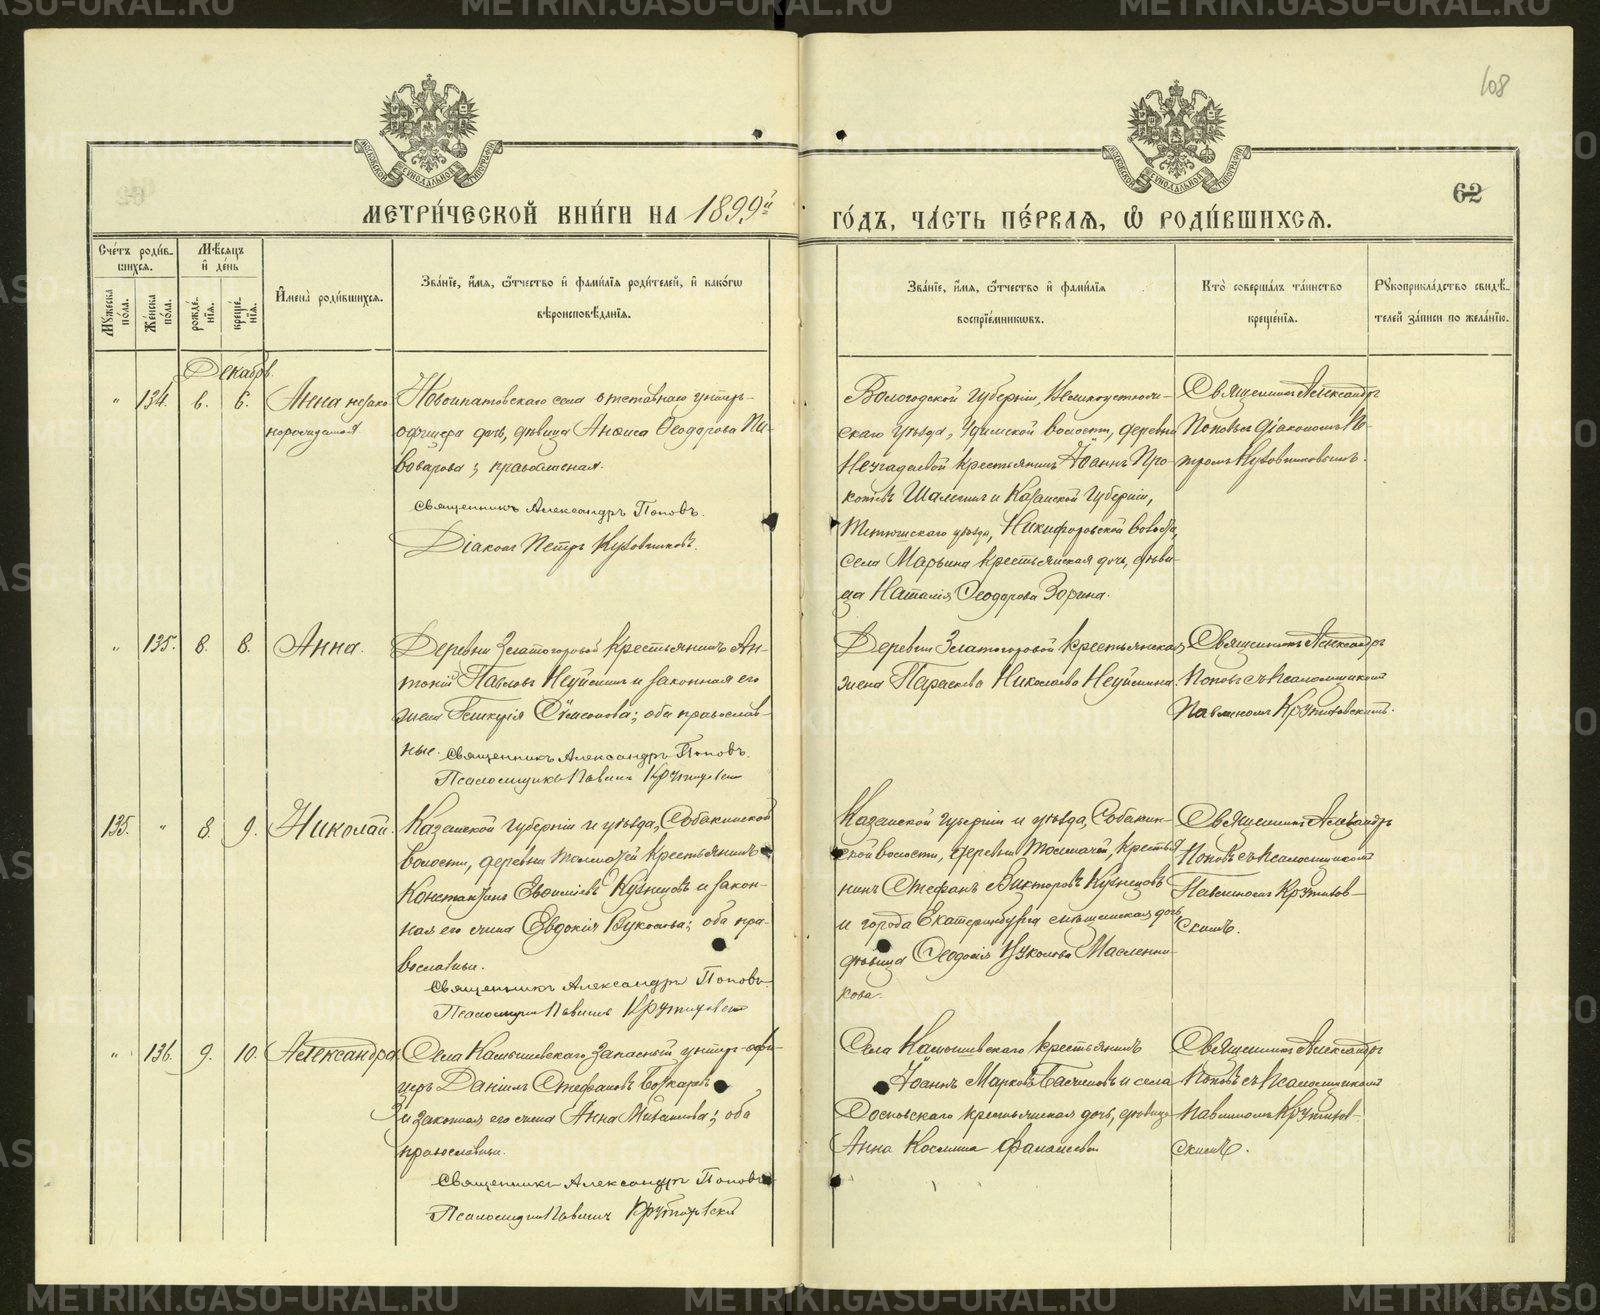 METRIKI.GASO-URAL.RU
108
62
МОСКОВСКОЙ СѴНОДАЛЬНОЙ ТИПОГРАФІИ
МОСКОВСКОЙ СѴНОДАЛЬНОЙ ТИПОГРАФІИ
МЕТРИ́ЧЕСКОЙ КНИ́ГИ НА 1899й ГО́ДЪ, ЧА́СТЬ ПЕ́РВАЯ, Ѿ РОДИ́ВШИХСЯ.
Сче́тъ роди́вшихся.
Мꙋжеска по́ла.
Же́нска по́ла.
Мѣ́сяцъ и҆ де́нь
рожде́нїя.
креще́нїя.
И҆мена̀ роди́вшихся.
Зва́нїе, и҆́мя, ѻ҆́тчество и҆ фами́лїя роди́телей, и҆ како́гѡ
вѣроисповѣ́данїя.
Зва́нїе, и҆́мя, ѻ҆́тчество и҆ фами́лїя
воспрїе́мникѡвъ.
Кто̀ соверша́лъ та́инство
креще́нїя.
Рꙋкоприкла́дство свидѣ́-
телей за́писи по жела́нїю.
Декабрь
" 134. 6. 6. Анна незако-
норожденная
Новоипатовскаго села отставного унтеръ-
офицера дочь, девица Анфиса Ѳеодорова Пи-
воварова; православная.
Священникъ Александръ Поповъ.
Діаконъ Петръ Кузовниковъ.
Вологодской губерніи, Великоустюж-
скаго уезда, Удимской волости, деревни
крестьянинъ Іоаннъ Про-
копьевъ и Казанской губерніи,
Тетюшскаго уезда, Никифоровской волости,
села Марьина крестьянская дочь, деви-
ца Наталія Ѳеодорова Зорина.
Священникъ Александръ
Поповъ съ діакономъ Пе-
тромъ Кузовниковымъ.
" 135. 8. 8. Анна.
Деревни Златогоровой крестьянинъ Ан-
тоній Павловъ Неуйминъ и законная его
жена Гликерія Симеонова; оба православ-
ные. Священникъ Александръ Поповъ.
Псаломщикъ Павлинъ Крутиховскій
Деревни Златогоровой крестьянская
жена Параскева Николаева Неуймина.
Священникъ Александръ
Поповъ съ псаломщикомъ
Павлиномъ Крутиховскимъ.
135. " 8. 9. Николай.
Казанской губерніи и уезда, Собакинской
волости, деревни крестьянинъ
Константинъ Евфиміевъ Кузнецовъ и закон-
ная его жена Евдокія Вуколова; оба пра-
вославные.
Священникъ Александръ Поповъ
Псаломщикъ Павлинъ Крутиховскій
Казанской губерніи и уезда, Собакин-
ской волости, деревни крестья-
нинъ Стефанъ Викторовъ Кузнецовъ
и города Екатеринбурга мещанская дочь,
девица Ѳеодосія Вуколова Масленни-
кова.
Священникъ Александръ
Поповъ съ псаломщикомъ
Павлиномъ Крутихов-
скимъ.
" 136. 9. 10. Александра
Села Камышевскаго запасный унтеръ-офи-
церъ Даніилъ Стефановъ
и законная его жена Анна; оба
православные.
Священникъ Александръ Поповъ
Псаломщикъ Павлинъ Крутиховскій
Села Камышевскаго крестьянинъ
Іоаннъ Марковъ и села
Сосновскаго крестьянская дочь, девица
Анна Космина
Священникъ Александръ
Поповъ съ псаломщикомъ
Павлиномъ Крутихов-
скимъ.